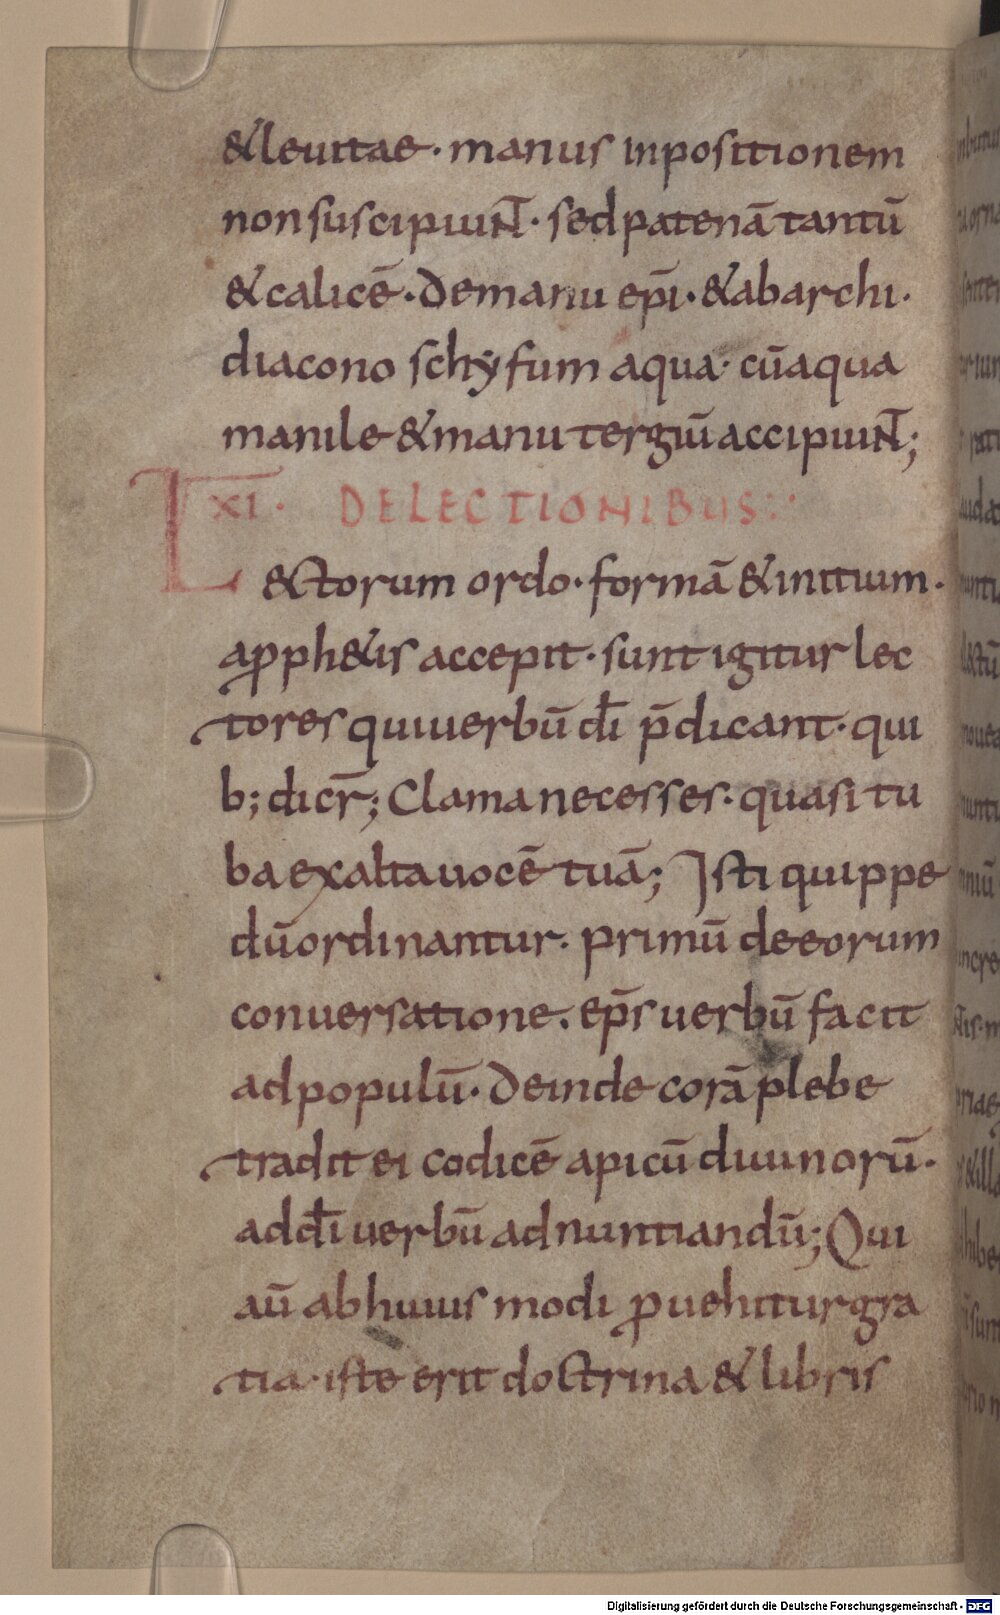 & leuitae · manus inpositionem
non suscipiunt · sed patenā tantū
& calicē · de manu ep̄i · & ab archi ·
diacono schyfum aqua · cū aqua
manile & manu tergiū accipiunt ;
XI · DE LECTIONIBUS :·
L&torum ordo · formā & initium ·
a ꝓph&is accepit · sunt igitur lec
tores qui uerbū dī p̄dicant · qui
b; dicr̄; Clama ne cesses · quasi tu
ba exalta uocē tuā; Isti quippe
dū ordinantur · primū de eorum
conuersatione · ep̄s uerbū facit
ad populū · deinde corā plebe
tradit ei codicē apicū diuinorū ·
ad dī uerbū adnuntiandū; Qui
aū ab huius modi ꝓuehitur gra
tia · iste erit doctrina & libris
Digitalisierung gefördert durch die Deutsche Forschungsgemeinschaft - DFG